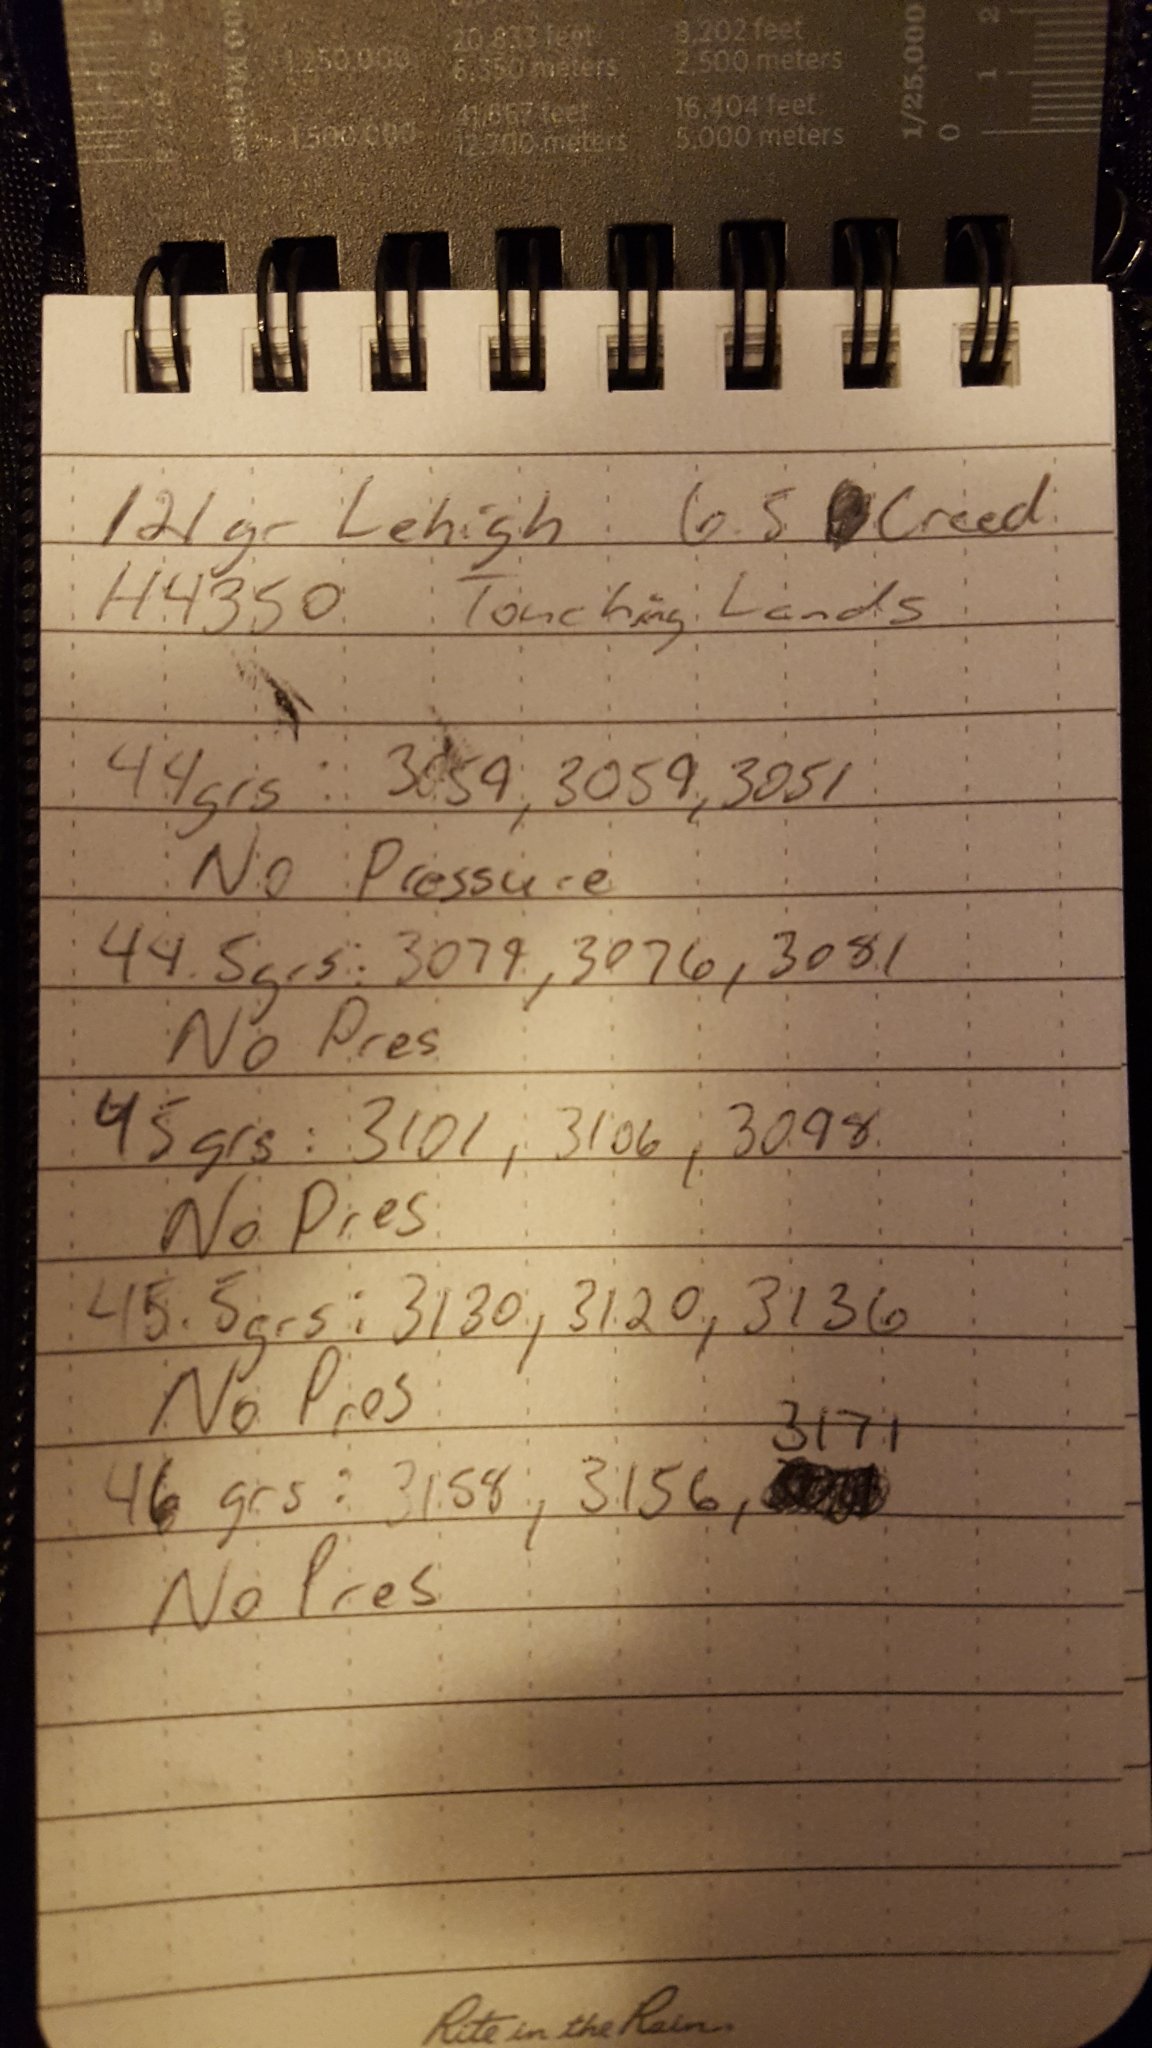 20,833 feet 8,202 feet
1,250,000 6,350 meters 2,500 meters
41,667 feet 16,404 feet
1,500,000 12,700 meters 5,000 meters
1/25,000
0 1 2
121gr Lehigh 6.5 Creed
H4350 Touching Lands
44grs: 3059, 3059, 3051
No Pressure
44.5grs: 3079, 3076, 3081
No Pres
45grs: 3101, 3106, 3098
No Pres
45.5grs: 3130, 3120, 3136
No Pres
3171
46 grs: 3158, 3156,
No Pres
Rite in the Rain